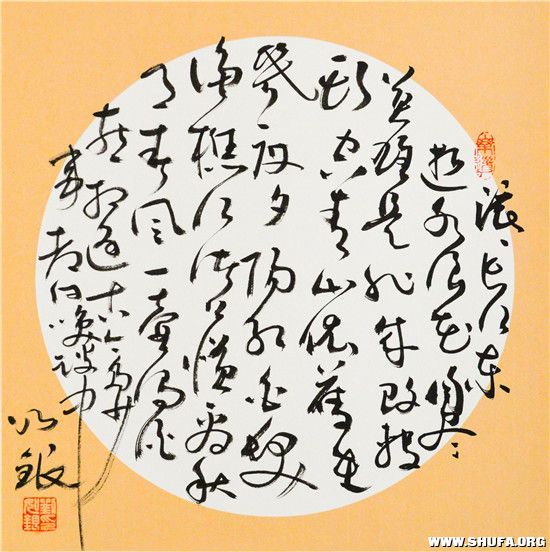 滚滚长江东
逝水浪花淘尽
英雄是非成败转
头空青山依舊在
幾度夕陽红白髮
渔樵江渚上惯看秋
月春風一壶浊酒
喜相逢古今多少
事都付笑談中
WWW.SHUFA.ORG